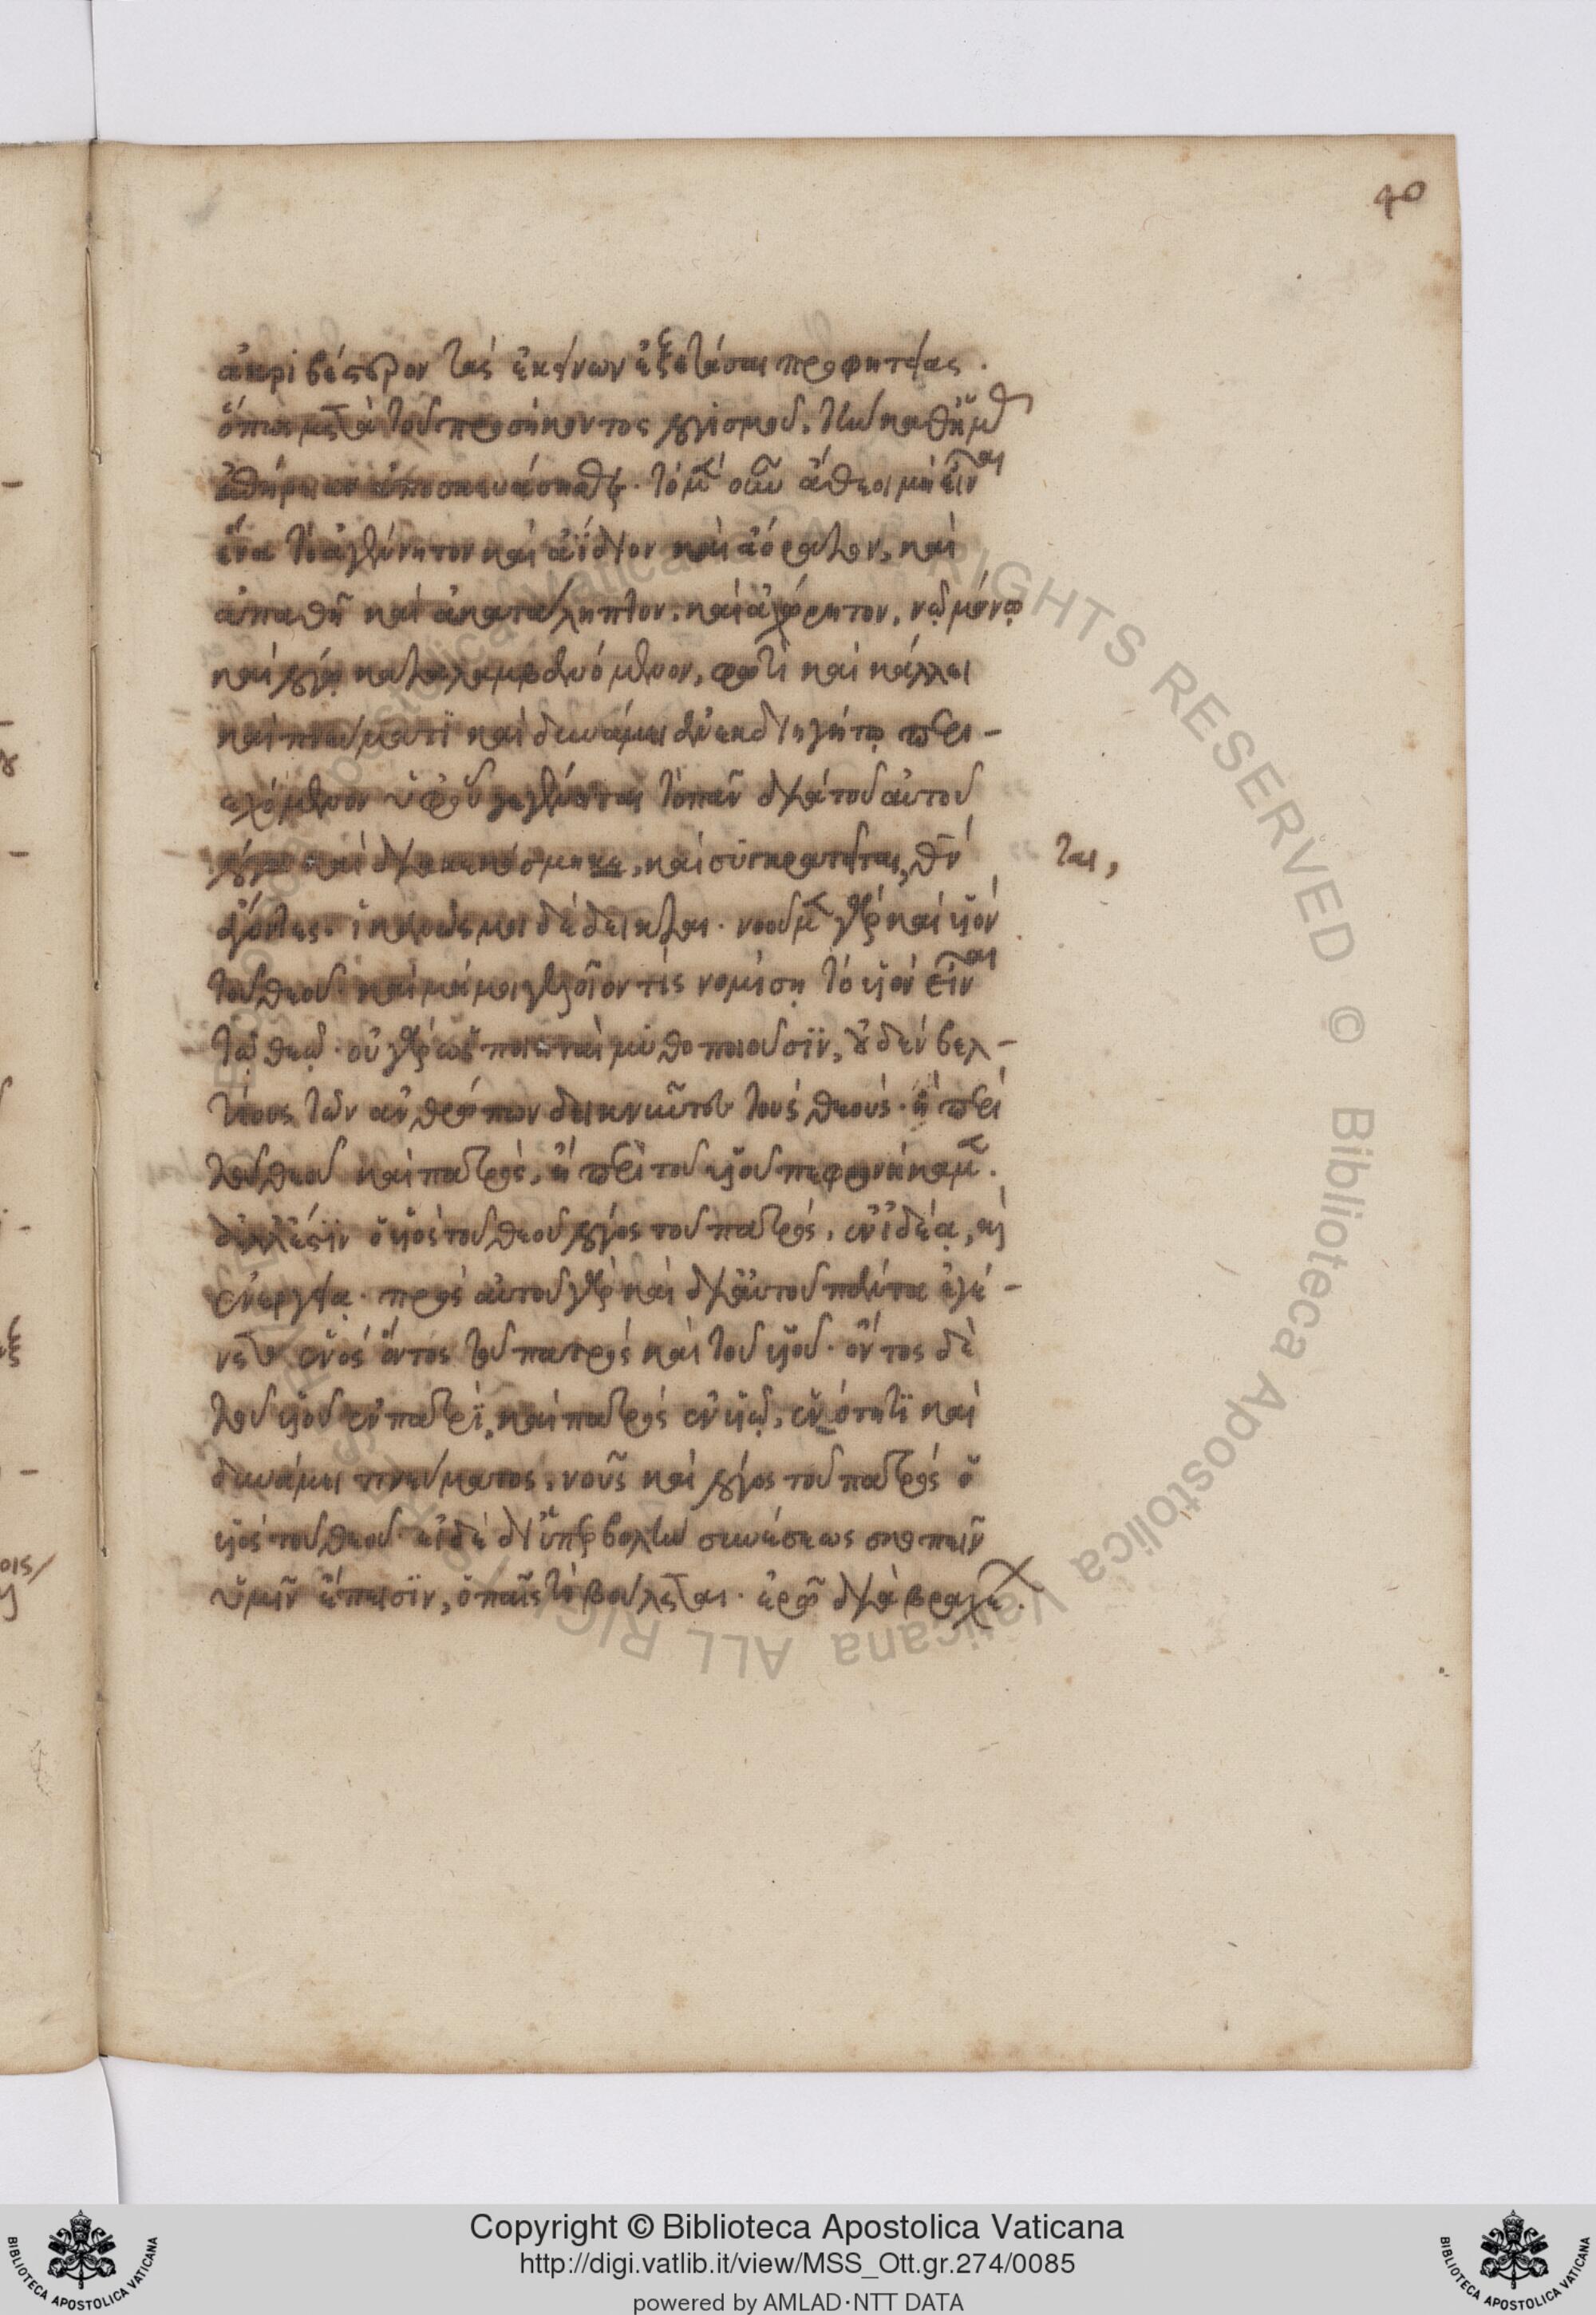 40
ἀκριβέστερον τὰς ἐκείνων ἐξετάσαι προφητείας.
ὅπως μετὰ τοῦ προσήκοντος λογισμοῦ, τὴν καθ' ἡμῶν
ἐπήρειαν ἀποσκευάσησθε. τὸ μὲν οὖν ἄθεοι μὴ εἶναι
ἕνα τὸ ἀγένητον καὶ ἀΐδιον καὶ ἀόρατον, καὶ
ἀπαθῆ καὶ ἀκατάληπτον, καὶ ἀχώρητον, νῷ μόνῳ
καὶ λόγῳ καταλαμβανόμενον, φωτὶ καὶ κάλλει
καὶ πνεύματι καὶ δυνάμει ἀνεκδιηγήτῳ περι-
εχόμενον ὑφ' οὗ γεγένηται τὸ πᾶν διὰ τοῦ αὐτοῦ
λόγου καὶ διακεκόσμηται, καὶ συγκρατεῖται, θεὸν
ἄγοντες. ἱκανῶς μοι δέδεικται. νοοῦμεν γὰρ καὶ υἱὸν
τοῦ θεοῦ. καὶ μή μοι γελοῖόν τις νομίσῃ τὸ υἱὸν εἶναι
τῷ θεῷ. οὐ γὰρ ὡς ποιηταὶ μυθοποιοῦσιν, οὐδὲν βελ-
τίους τῶν ἀνθρώπων δεικνύντες τοὺς θεούς. ἢ περὶ
τοῦ θεοῦ καὶ πατρός, ἢ περὶ τοῦ υἱοῦ πεφρονήκαμεν.
ἀλλ' ἐστὶν ὁ υἱὸς τοῦ θεοῦ λόγος τοῦ πατρός, ἐν ἰδέᾳ, καὶ
ἐνεργείᾳ. πρὸς αὐτοῦ γὰρ καὶ δι' αὐτοῦ πάντα ἐγέ-
νετο ἑνὸς ὄντος τοῦ πατρὸς καὶ τοῦ υἱοῦ. ὄντος δὲ
τοῦ υἱοῦ ἐν πατρί, καὶ πατρὸς ἐν υἱῷ, ἑνότητι καὶ
δυνάμει πνεύματος, νοῦς καὶ λόγος τοῦ πατρὸς ὁ
υἱὸς τοῦ θεοῦ. εἰ δὲ δι' ὑπερβολὴν συνέσεως σκοπεῖν
ὑμῖν ἔπεισιν, ὁ παῖς τί βούλεται. ἐρῶ διὰ βραχέων.
ται,
Copyright © Biblioteca Apostolica Vaticana
http://digi.vatlib.it/view/MSS_Ott.gr.274/0085
powered by AMLAD·NTT DATA